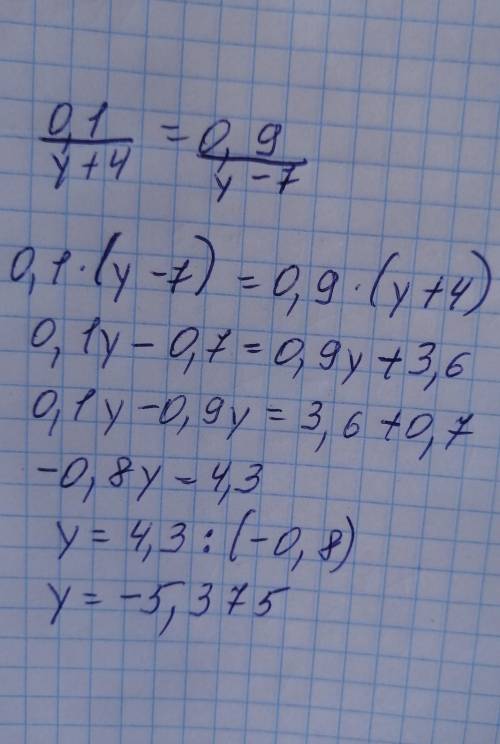 0,1/y+4 = 0,9/y-7
0,1·(y-7) = 0,9·(y+4)
0,1y-0,7=0,9y+3,6
0,1y-0,9y=3,6+0,7
-0,8y-4,3
y=4,3:(-0,8)
y=-5,375